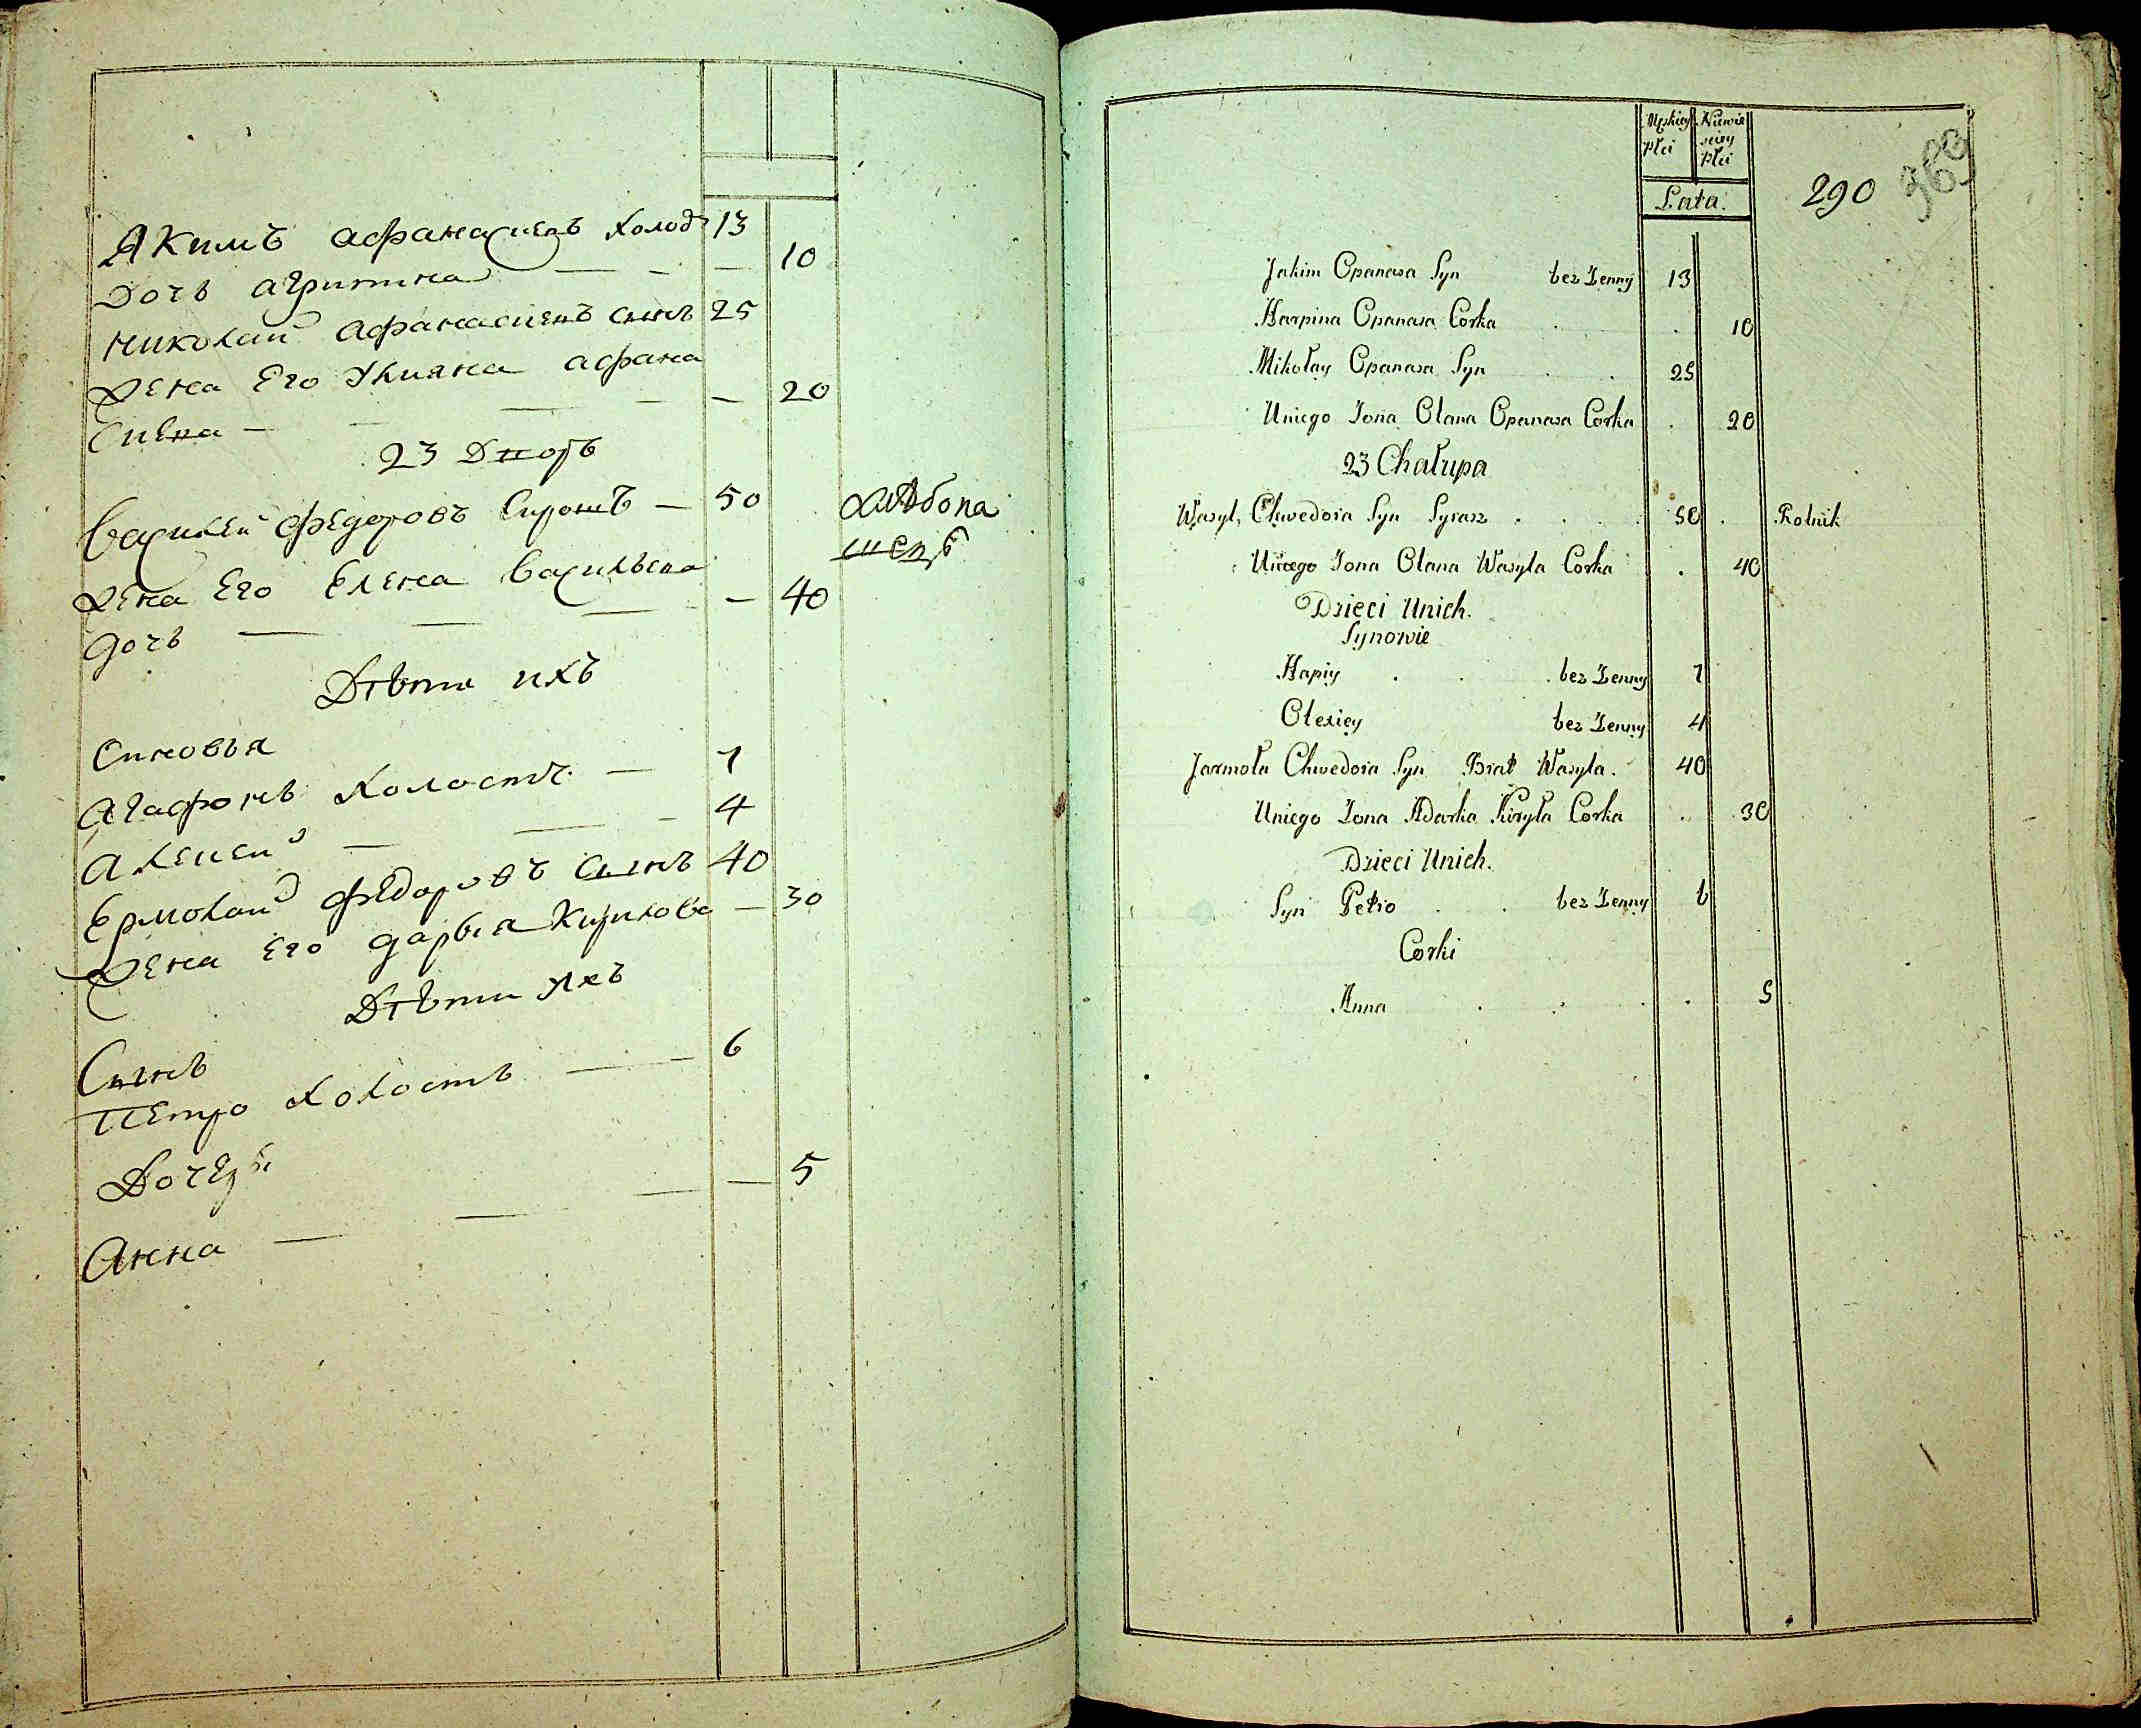 Акимъ афанасиевъ холос 13
Дочь агрипина — — — 10
николай афанасиевъ сынъ 25
Жена Его Улияна афана
сиева — — — — 20
23 Дворъ
Василей федоровъ Сирошъ — 50 хлѣбопа
шецъ
Жена Его Елена Васильева
дочь — — — — 40
Дѣти ихъ
Синовья
агафонъ холостъ — 7
алексей — — — 4
Ермолай федоровъ сынъ 40
Жена Его дарья Кирилова — 30
Дѣти ихъ
Сынъ
Петро холостъ — — 6
Дочери
Анна — — — — 5
Męskiey Płci Niewie
sciey
Płci
Lata.
290 369
Jakim Opanasa Syn bez Zenny 13
Harpina Opanasa Corka . . 10
Mikołay Opanasa Syn . . 25
Uniego Zona Olana Opanasa Corka . 20
23 Chałupa
Wasyl, Chwedora Syn Syrasz . . . . 50 . Rolnik
Uniego Zona Olana Wasyla Corka . 40
Dzieci Unich.
Synowie
Hapiy . . . bez Zenny 7
Olexiey bez Zenny 4
Jarmoła Chwedora Syn Brat Wasyla. 40
Uniego Zona Adarka Kiryła Corka . 30
Dzieci Unich.
Syn Petro . . bez Zenny 6
Corki
Anna . . . . 5